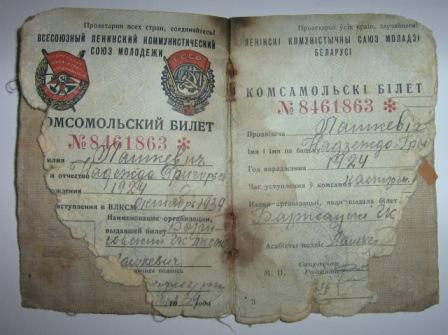 Пролетарии всех стран, соединяйтесь!
ВСЕСОЮЗНЫЙ ЛЕНИНСКИЙ КОММУНИСТИЧЕСКИЙ
СОЮЗ МОЛОДЕЖИ
ОМСОМОЛЬСКИЙ БИЛЕТ
№ 8461863 *
милия Пашкевич
и отчество Надежда Григорьев
рождения 1924
вступления в ВЛКСМ октябрь 1939
Наименование организации,
выдавшей билет Бори
совский
Пашкевич
подпись
Пролетарыі ўсіх краін, злучайцеся!
ЛЕНІНСКІ КОМУНІСТЫЧНЫ САЮЗ МОЛАДЗІ
БЕЛАРУСІ
КОМСАМОЛЬСКІ БІЛЕТ
№ 8461863 *
Прозвішча Пашкевіч
Імя і імя па бацьку Надзежда
Год нараджэння 1924
Час уступлення ў комсамол
Назва організацыі, якая выдала білет
Барысаўскі
Асабісты подпіс Пашке
М. П.
3